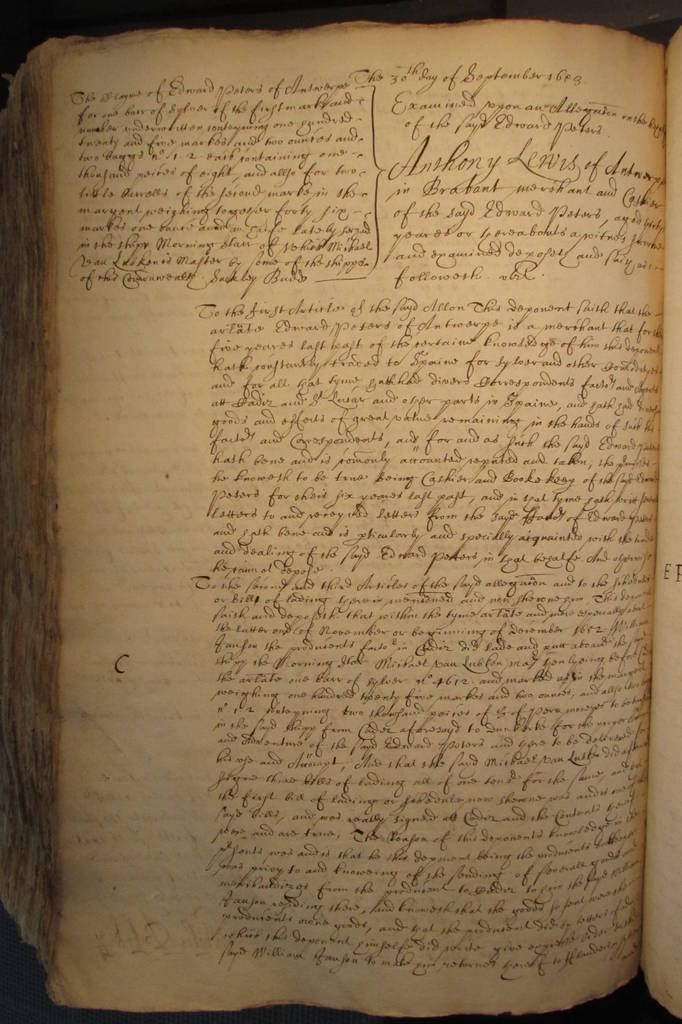 The Clayme of Edward Peters of Antwerpe
for one barr of sylver of the first marke and
number underwritten contayning one hundred
twenty and five markes and two ounces and
two baggs no. 1. 2. each containing one
thousand peices of eight, and allso for two
little Barrells of the second marke in the
margent weighing togeather forty six
markes one ounce and an halfe lately seized
in the shipp Morning starr of which Michael
van Lubkenis Master by some of the shipps
of this Commonwealth. Suckley Budd
The 30th day of September 1653
Examined upon an Allegation on the behalfe
of the sayd Edward Peters.
Anthony Lewis of Antwerpe
in Brabant merchant and Cashier
of the sayd Edward Peters, aged thirty
yeares or thereabouts a witnes sworne
and examined deposeth and saith as
followeth. vizt.
To the first Article of the sayd Allon This deponent saith that the
arlate Edward Peters of Antwerpe is a merchant that for the
five yeares last past of the certaine knowledge of him this deponent
hath constantly traded to Spaine for sylver and other Comodityes
and for all that tyme hath had divers Correspondents factors and Agents
att Cadiz and St Lucar and other parts in Spaine, and hath had divers
goods and effects of great value remaining in the hands of such his
factors and Correspondents, and for and as such the sayd Edward Peters
hath bene and is comonly accounted reputed and taken, the premisses
he knoweth to be true being Cashier and Booke keeper of the sayd Edward
Peters for theis six yeares last past, and in that tyme hath writt severall
letters to and received letters from the sayd factors of Edward Peters
and hath bene and is pticularly and specially acquainted with the trade
and dealing of the sayd Edward Peters in that behalfe And otherwise
he cannot depose.
To the second and third Articles of the sayd allegation and to the schedule
or bill of lading therein mentioned and now shewne him This deponent
saith and deposeth that within the tyme arlate and more especially about
the latter end of November or beginning of December 1652 William
Janson the producents factor in Cadiz did lade and putt aboard the sayd
shipp the Morning star Michael van Lubken master then lyeing before Cadiz
the arlate one barr of sylver no 4612. and marked as in the margent
weighing one hundred twenty five markes and two ounces, and allso two baggs
no 1. 2. contayning two thousand peices of 8. of Peru money to be transported
in the sayd shipp from Cadiz aforesayd to Dunkirke for the proper account
and adventure of the sayd Edward Peters and there to be delivered for
his use and Account, And that the sayd Michael van Lubken did
signe three bills of lading all of one tenor for the same, and that
the first bill of lading or schedule now shewne was and is one of the
sayd bills, and was really signed att Cadiz and the Contents thereof
were and are true, The Reason of this deponents knowledge in the
premises was and is that he this deponent being the producents Cashier
was privy to and knoweing of the sending of severall goods and
merchandizes from the producent to Cadiz to the sayd William
Janson residing there, and knoweth that the goods so sent were the
producents owne goods, and that the producent did by letters of
which this deponent himselfe did write give expresse order to the
sayd William Janson to make him returnes thereof to Flanders
C